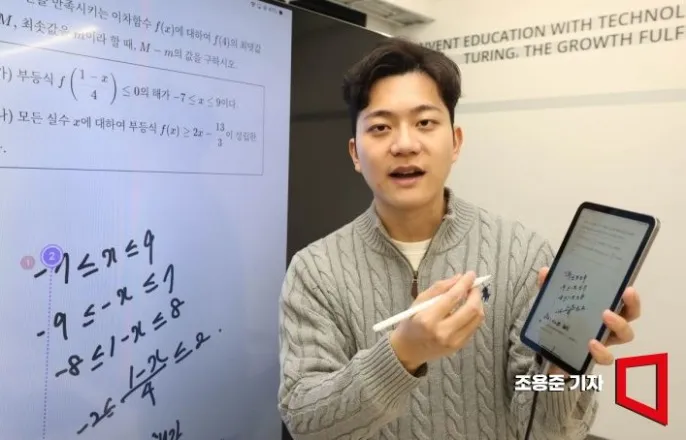 만족시키는 이차함수 f(x)에 대하여 f(4)의 최댓값
M, 최솟값은 m이라 할 때, M − m의 값을 구하시오.
가) 부등식 f((1−x)/4) ≤ 0의 해가 −7 ≤ x ≤ 9이다.
나) 모든 실수 x에 대하여 부등식 f(x) ≥ 2x − 13/3 이 성립한
다.
-7 ≤ x ≤ 9
-9 ≤ -x ≤ 7
-8 ≤ 1-x ≤ 8
-2 ≤ (1-x)/4 ≤ 2
1
2
VENT EDUCATION WITH TECHNOL
TURING. THE GROWTH FULF
조용준 기자